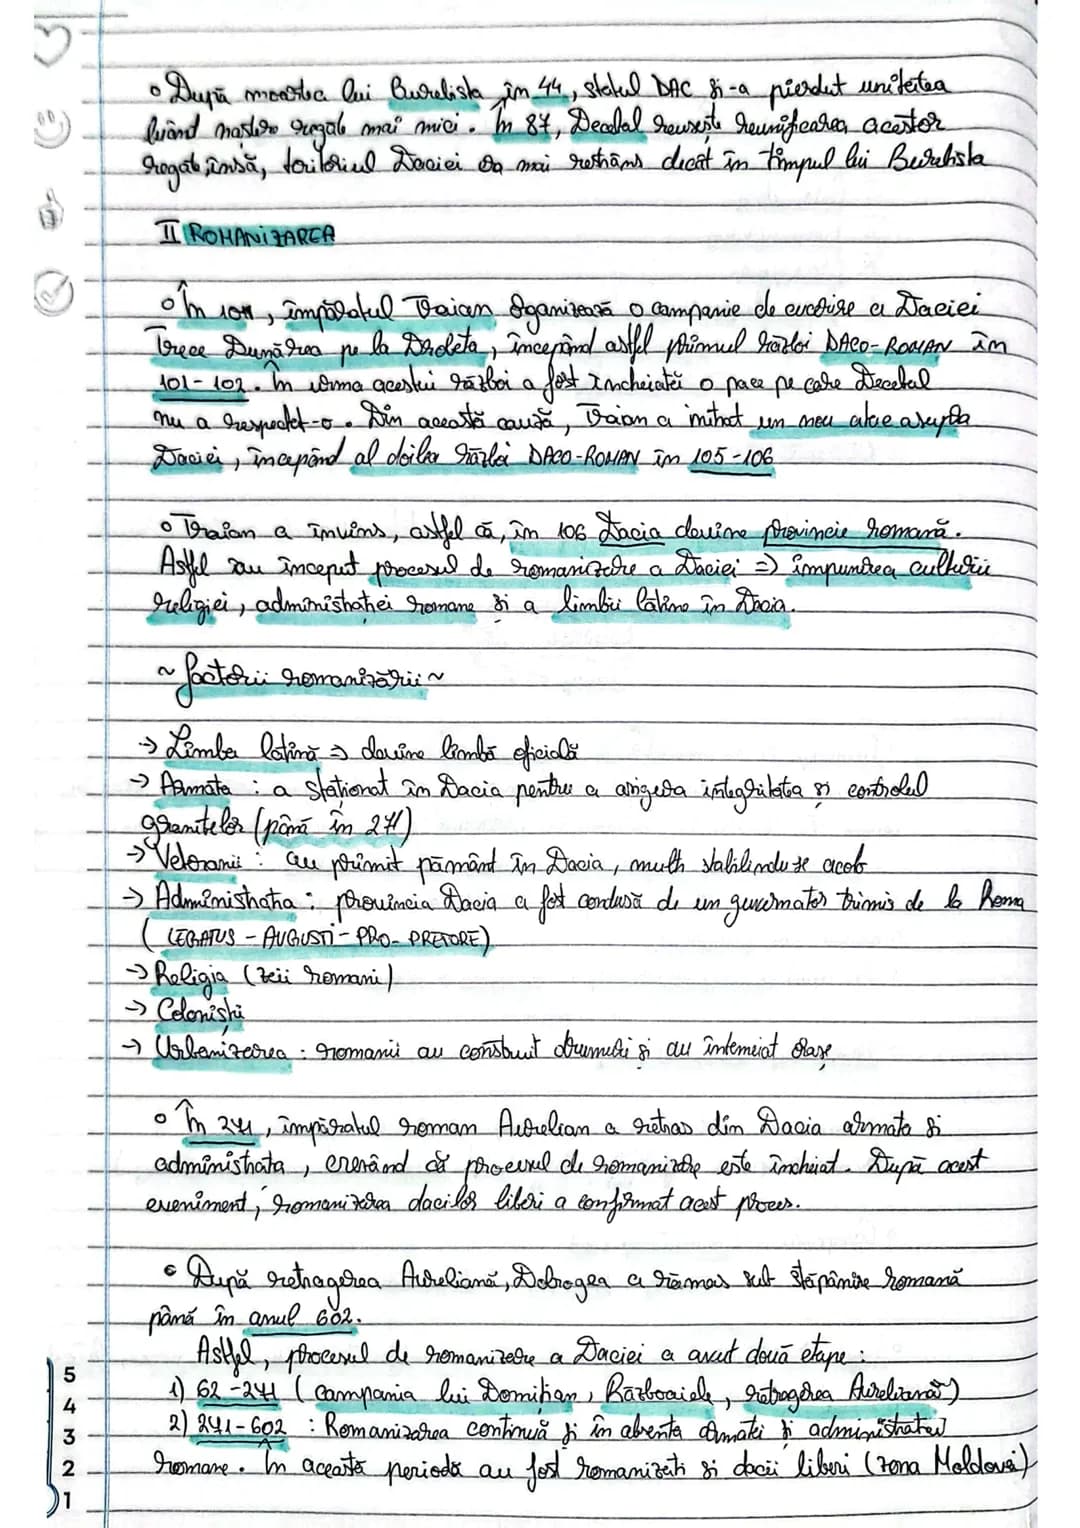 După moartea lui Burebista în 44, statul DAC și-a pierdut unitatea
luând naștere regate mai mici. În 87, Decebal reușește reunificarea acestor
regate însă, teritoriul Daciei era mai restrâns decât în timpul lui Burebista
II ROMANIZAREA
În 101, împăratul Traian organizează o campanie de cucerire a Daciei
Trece Dunărea pe la Drobeta, începând astfel primul război DACO-ROMAN în
101-102. În urma acestui război a fost încheiată o pace pe care Decebal
nu a respectat-o. Din această cauză, Traian a inițiat un nou atac asupra
Daciei, începând al doilea război DACO-ROMAN în 105-106
Traian a învins, astfel că, în 106 Dacia devine provincie romană.
Astfel au început procesul de romanizare a Daciei => impunerea culturii
religiei, administrației romane și a limbii latine în Dacia.
~ factorii romanizării ~
-> Limba latină => devine limbă oficială
-> Armata : a staționat în Dacia pentru a asigura integritatea și controlul
granitelor (până în 271)
-> Veteranii : au primit pământ în Dacia, mulți stabilindu-se acolo
-> Administrația : provincia Dacia a fost condusă de un guvernator trimis de la Roma
( LEGATUS - AUGUSTI - PRO - PRETORE)
-> Religia (zeii romani)
-> Coloniștii
-> Urbanizarea : romanii au construit drumuri și au întemeiat orașe
În 271, împăratul roman Aurelian a retras din Dacia armata și
administrația, crezând că procesul de romanizare este încheiat. După acest
eveniment, romanizarea dacilor liberi a confirmat acest proces.
După retragerea Aureliană, Dobrogea a rămas sub stăpânire romană
până în anul 602.
Astfel, procesul de romanizare a Daciei a avut două etape :
1) 62 - 271 ( campania lui Domițian, Războaiele, retragerea Aureliană)
2) 271-602 : Romanizarea continuă și în absența armatei și administrației
romane. În această perioadă au fost romanizați și dacii liberi (zona Moldovei)
5
4
3
2
1